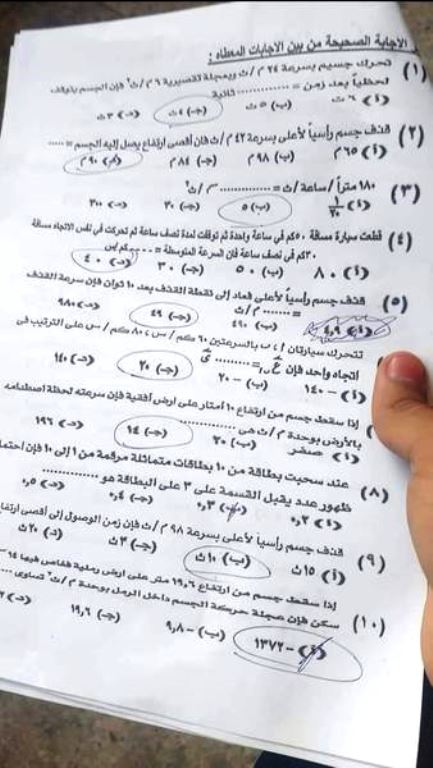 الاجابة الصحيحة من بين الاجابات المعطاه :
(١) تحرك جسيم بسرعة ٢٤ م/ث وبعجلة تقصيرية ٦ م/ث٢ فإن الجسم يتوقف
لحظياً بعد زمن = ............ ثانية
(أ) ٦ ث (ب) ٥ ث (جـ) ٤ ث (د) ٣ ث
(٢) قذف جسم رأسياً لأعلى بسرعة ٤٢ م/ث فإن أقصى ارتفاع يصل إليه الجسم = .....
(أ) ٦٥ م (ب) ٩٨ م (جـ) ٨٤ م (د) ٩٠ م
(٣) ١٨٠ متراً/ساعة/ث = ............ م/ث٢
(أ) ١/٢٠ (ب) ٥ (جـ) ٣٠ (د) ٣٠٠
(٤) قطعت سيارة مسافة ٥٠ كم في ساعة واحدة ثم توقفت لمدة نصف ساعة ثم تحركت في نفس الاتجاه مسافة
٣٠ كم في نصف ساعة فإن السرعة المتوسطة = ..... كم/س
(أ) ٨٠ (ب) ٥٠ (جـ) ٣٠ (د) ٤٠
(٥) قذف جسم رأسياً لأعلى فعاد إلى نقطة القذف بعد ١٠ ثوان فإن سرعة القذف
= ....... م/ث
(أ) ٤,٩ (ب) ٤٩٠ (جـ) ٤٩ (د) ٩٨٠
تتحرك سيارتان أ ، ب بالسرعتين ٦٠ كم/س ، ٨٠ كم/س على الترتيب في
اتجاه واحد فإن ع = ......... ى
(أ) -١٤٠ (ب) -٢٠ (جـ) ٢٠ (د) ١٤٠
إذا سقط جسم من ارتفاع ١٠ أمتار على ارض أفقية فإن سرعته لحظة اصطدامه
بالأرض بوحدة م/ث هى ............
(أ) صفر (ب) ٢٠ (جـ) ١٤ (د) ١٩٦
(٨) عند سحب بطاقة من ١٠ بطاقات متماثلة مرقمة من ١ إلى ١٠ فإن
ظهور عدد يقبل القسمة على ٣ على البطاقة هو ............
(أ) ٠,٢ (ب) ٠,٣ (جـ) ٠,٤ (د) ٠,٥
(٩) قذف جسم رأسياً لأعلى بسرعة ٩٨ م/ث فإن زمن الوصول إلى أقصى
(أ) ١٥ ث (ب) ١٠ ث (جـ) ٣ ث (د) ٢٠ ث
إذا سقط جسم من ارتفاع ١٩,٦ متر على ارض رملية فغاص فيها
(١٠) سكن فإن عجلة حركة الجسم داخل الرمل بوحدة م/ث٢ تساوى ....
(أ) -١٣٧٢ (ب) -٩,٨ (جـ) ١٩,٦